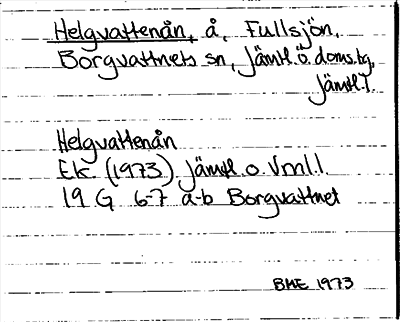 Helgvattenån, å, Fullsjön,
Borgvattnets sn, Jämtl. ö. doms.bg,
Jämtl. l.
Helgvattenån
Ek. (1973) Jämtl. o. Vml. l.
19 G 6-7 a-b Borgvattnet
BME 1973